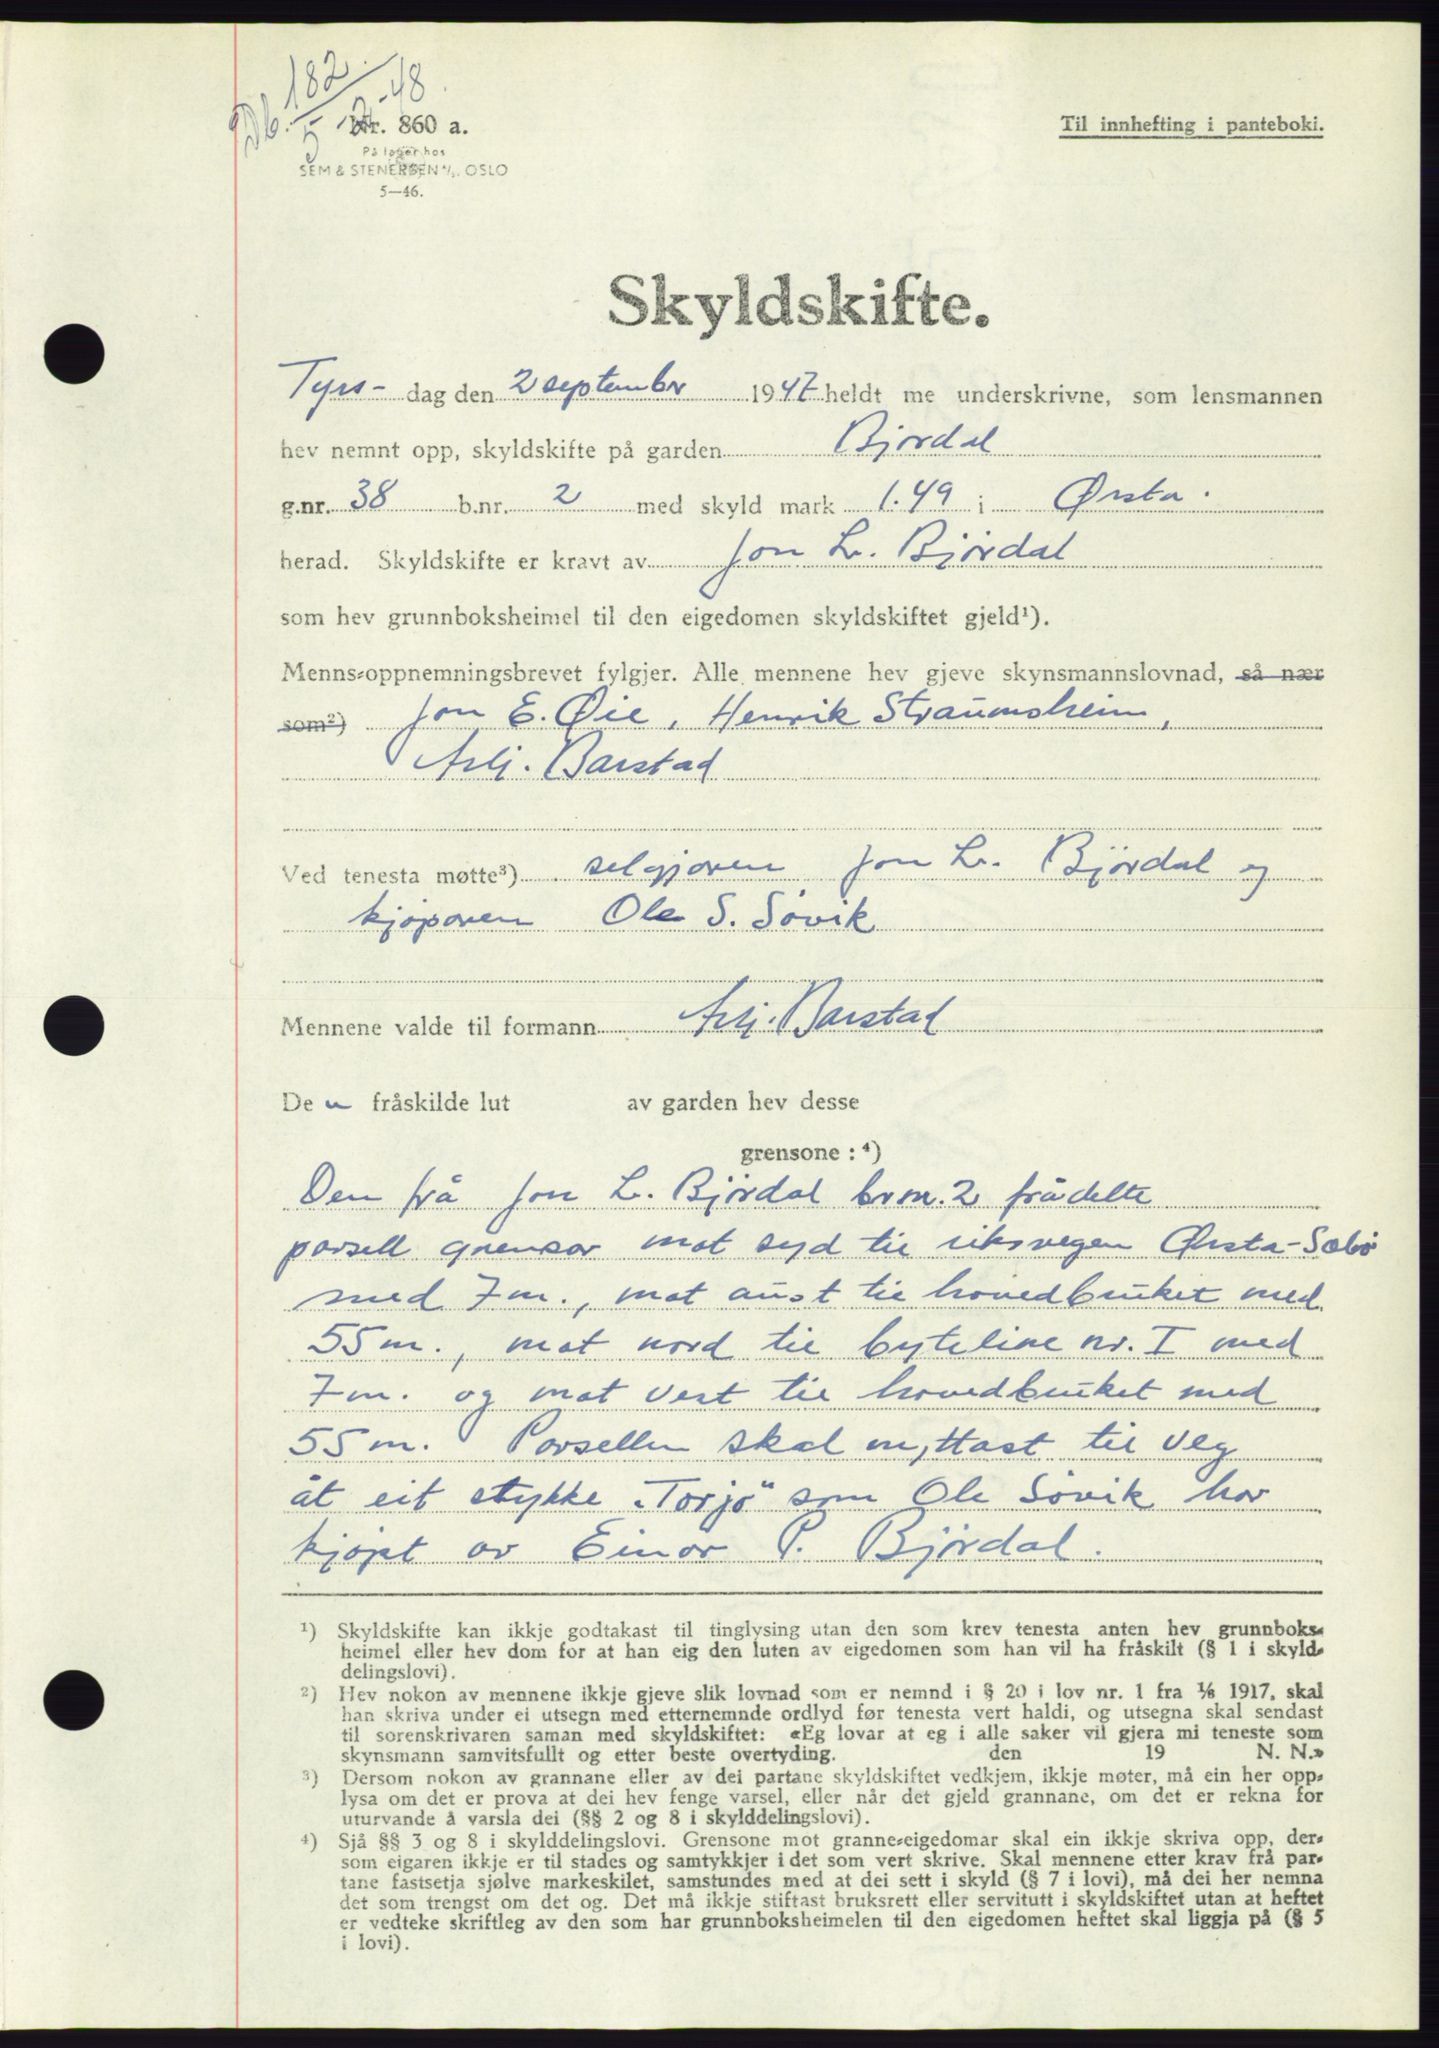 Db. 182
5-2-48.
Nr. 860 a.
På lager hos
SEM & STENERSEN A/S, OSLO
5—46.
Til innhefting i panteboki.
Skyldskifte.
Tyrs- dag den 2 septembr 1947 heldt me underskrivne, som lensmannen
hev nemnt opp, skyldskifte på garden Bjørdal
g.nr. 38 b.nr. 2 med skyld mark 1.49 i Ørsta.
herad. Skyldskifte er kravt av Jon L. Bjørdal
som hev grunnboksheimel til den eigedomen skyldskiftet gjeld¹).
Menns-oppnemningsbrevet fylgjer. Alle mennene hev gjeve skynsmannslovnad, så nær
som²) Jon E. Øie, Henrik Straumsheim,
Asbj. Barstad
Ved tenesta møtte³) selgjaren Jon L. Bjørdal og
kjøparen Ole S. Søvik
Mennene valde til formann Asbj. Barstad
De n fråskilde lut av garden hev desse
grensone : ⁴)
Den frå Jon L. Bjørdal brnr. 2 frådelte
parsell grensar mot syd til riksvegen Ørsta-Sæbø
med 7 m., mot aust til hovedbruket med
55 m., mot nord til byteline nr. I med
7 m. og mot vest til hovedbruket med
55 m. Parsellen skal nyttast til veg
åt eit stykke "Torjo" som Ole Søvik har
kjøpt av Einar P. Bjørdal.
¹) Skyldskifte kan ikkje godtakast til tinglysing utan den som krev tenesta anten hev grunnboks-
heimel eller hev dom for at han eig den luten av eigedomen som han vil ha fråskilt (§ 1 i skyld-
delingslovi).
²) Hev nokon av mennene ikkje gjeve slik lovnad som er nemnd i § 20 i lov nr. 1 fra 1/6 1917, skal
han skriva under ei utsegn med etternemnde ordlyd før tenesta vert haldi, og utsegna skal sendast
til sorenskrivaren saman med skyldskiftet: «Eg lovar at eg i alle saker vil gjera mi teneste som
skynsmann samvitsfullt og etter beste overtyding. den 19 N. N.»
³) Dersom nokon av grannane eller av dei partane skyldskiftet vedkjem, ikkje møter, må ein her opp-
lysa om det er prova at dei hev fenge varsel, eller når det gjeld grannane, om det er rekna for
uturvande å varsla dei (§§ 2 og 8 i skylddelingslovi).
⁴) Sjå §§ 3 og 8 i skylddelingslovi. Grensone mot granne-eigedomar skal ein ikkje skriva opp, der-
som eigaren ikkje er til stades og samtykkjer i det som vert skrive. Skal mennene etter krav frå par-
tane fastsetja sjølve markeskilet, samstundes med at dei sett i skyld (§ 7 i lovi), må dei her nemna
det som trengst om det og. Det må ikkje stiftast bruksrett eller servitutt i skyldskiftet utan at heftet
er vedteke skriftleg av den som har grunnboksheimelen til den eigedomen heftet skal liggja på (§ 5
i lovi).